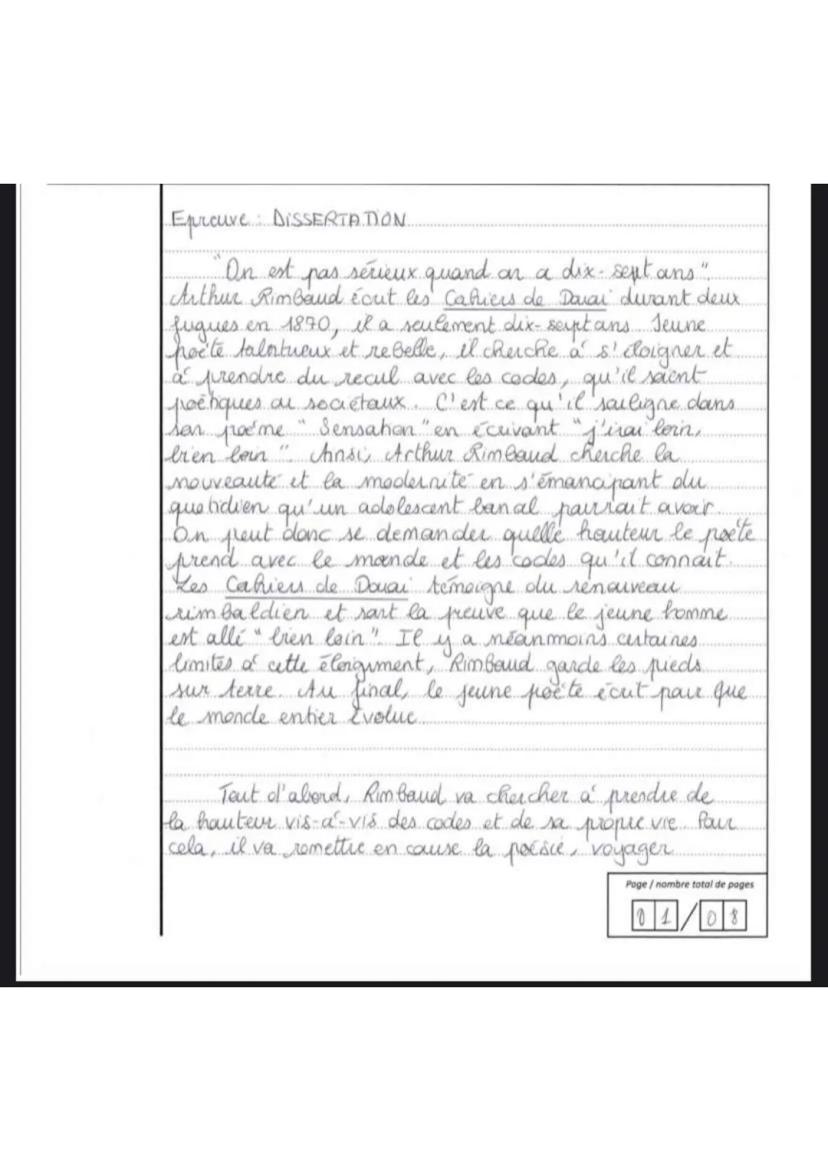 Epreuve : DISSERTATION
"On est pas sérieux quand on a dix-sept ans".
Arthur Rimbaud écrit les Cahiers de Douai durant deux
fugues en 1870, il a seulement dix-sept ans. Jeune
poète talentueux et rebelle, il cherche à s'éloigner et
à prendre du recul avec les codes, qu'il soient
poétiques ou sociétaux. C'est ce qu'il souligne dans
son poème "Sensation" en écrivant "j'irai loin,
bien loin". Ainsi, Arthur Rimbaud cherche la
nouveauté et la modernité en s'émancipant du
quotidien qu'un adolescent banal pourrait avoir.
On peut donc se demander quelle hauteur le poète
prend avec le monde et les codes qu'il connait.
Les Cahiers de Douai témoigne du renouveau
rimbaldien et sont la preuve que le jeune homme
est allé "bien loin". Il y a néanmoins certaines
limites à cette éloignment, Rimbaud garde les pieds
sur terre. Au final, le jeune poète écrit pour que
le monde entier évolue.
Tout d'abord, Rimbaud va chercher à prendre de
la hauteur vis-à-vis des codes et de sa propre vie. Pour
cela, il va remettre en cause la poésie, voyager
Page / nombre total de pages
01/08